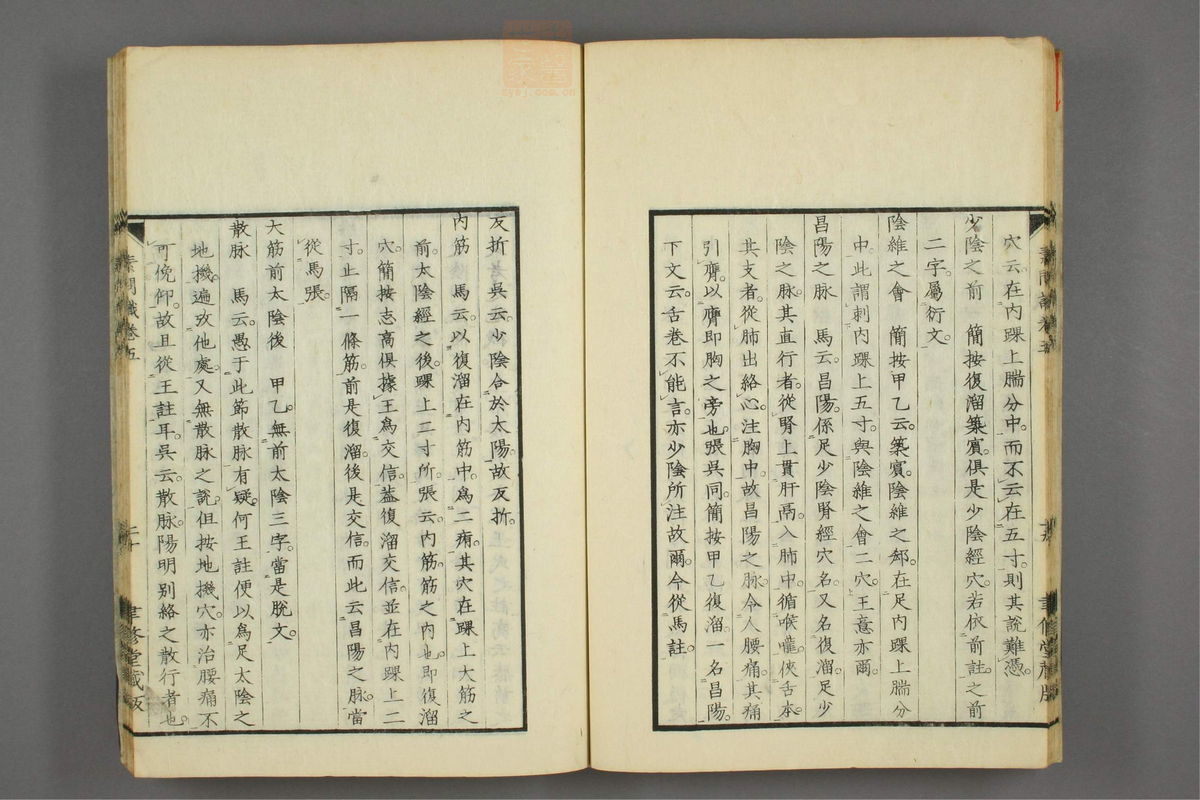 穴。云在内踝上腨分中。而不云在五寸。則其說難憑。
少陰之前　簡按復溜築賓。俱是少陰經穴。若依前註。之前
二字。屬衍文。
陰維之會　簡按甲乙云。築賓。陰維之郄。在足内踝上腨分
中。此謂刺内踝上五寸。與陰維之會二穴。王意亦爾。
昌陽之脉　馬云。昌陽。係足少陰腎經穴名。又名復溜。足少
陰之脉。其直行者。從腎上貫肝鬲。入肺中。循喉嚨。俠舌本。
其支者。從肺出絡心。注胸中。故昌陽之脉。令人腰痛。其痛
引膺。以膺即胸之旁也。張吳同。簡按甲乙復溜。一名昌陽。
下文云。舌卷不能言。亦少陰所注故爾。今從馬註。
反折　吳云。少陰合於太陽。故反折。
内筋　馬云。以復溜在内筋中。爲二痏。其穴在踝上大筋之
前。太陰經之後。踝上二寸所。張云。内筋。筋之内也。即復溜
穴。簡按志高俱據王爲交信。蓋復溜交信。並在内踝上二
寸。止隔一條筋。前是復溜。後是交信。而此云昌陽之脉。當
從馬張。
大筋前太陰後　甲乙。無前太陰三字。當是脫文。
散脉　馬云。愚于此節散脉有疑。何王註便以爲足太陰之
地機。遍攷他處。又無散脉之說。但按地機穴。亦治腰痛不
可俛仰。故且從王註耳。吳云。散脉。陽明別絡之散行者也。
素問識卷五
二十
聿修堂藏板